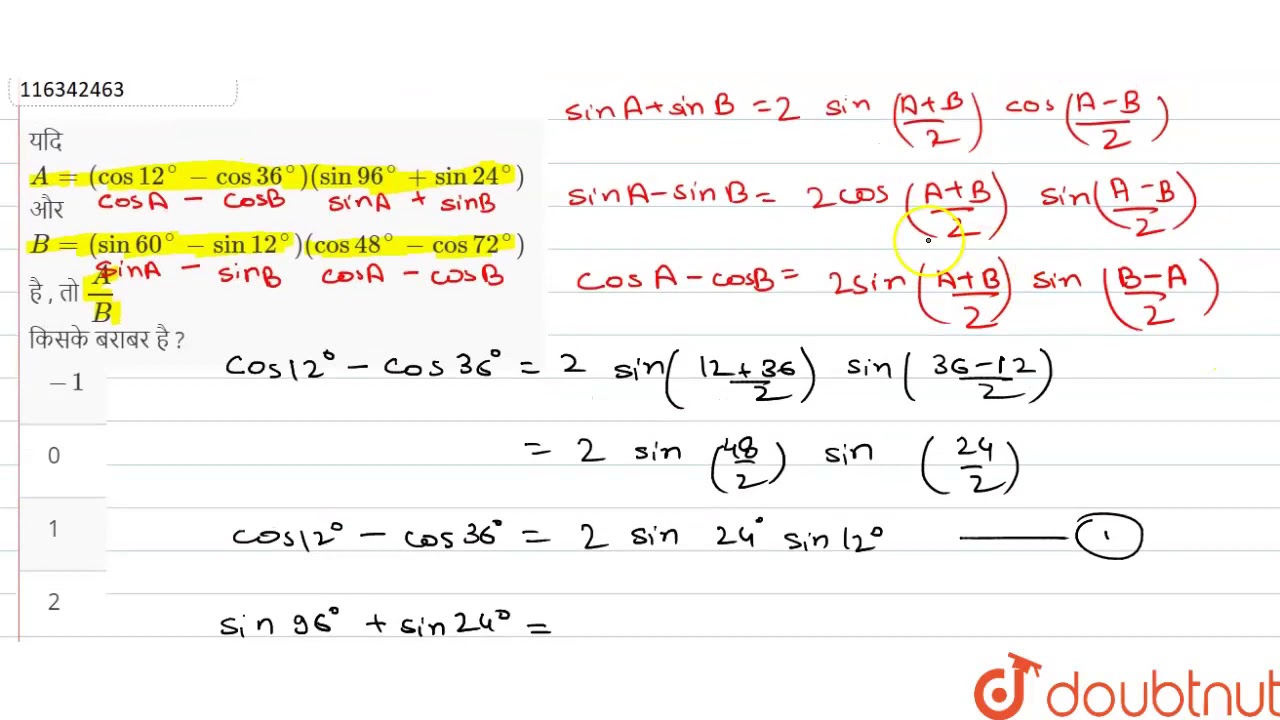 116342463
यदि
A = (cos 12° − cos 36°)(sin 96° + sin 24°)
cosA − cosB sinA + sinB
और
B = (sin 60° − sin 12°)(cos 48° − cos 72°)
sinA − sinB cosA − cosB
है , तो A/B
किसके बराबर है ?
−1
0
1
2
sinA + sinB = 2 sin (A+B/2) cos (A−B/2)
sinA − sinB = 2cos (A+B/2) sin (A−B/2)
cosA − cosB = 2sin (A+B/2) sin (B−A/2)
cos12° − cos36° = 2 sin (12+36/2) sin (36−12/2)
= 2 sin (48/2) sin (24/2)
cos12° − cos36° = 2 sin 24° sin12° —— 1
sin 96° + sin24° =
doubtnut